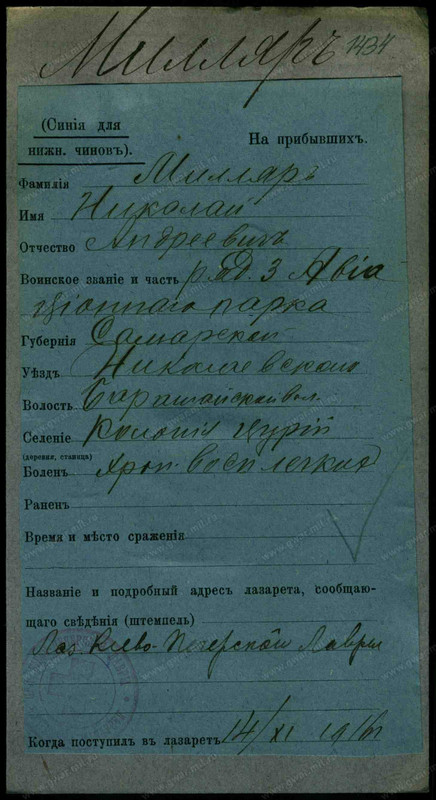 Милляръ 1434
(Синія для
нижн. чиновъ).
На прибывшихъ.
Фамилія Милляръ
Имя Николай
Отчество Андреевичъ
Воинское званіе и часть ряд. 3 Авіа
ціоннаго парка
Губернія Самарской
Уѣздъ Николаевскаго
Волость вол.
Селеніе Колонія Цугъ
(деревня, станица)
Боленъ Хрон. восп легкихъ
Раненъ
Время и мѣсто сраженія
Названіе и подробный адресъ лазарета, сообщаю-
щаго свѣдѣнія (штемпель)
Лаз. Кіево-Печерской Лавры
Когда поступилъ въ лазаретъ 14/XI 1916